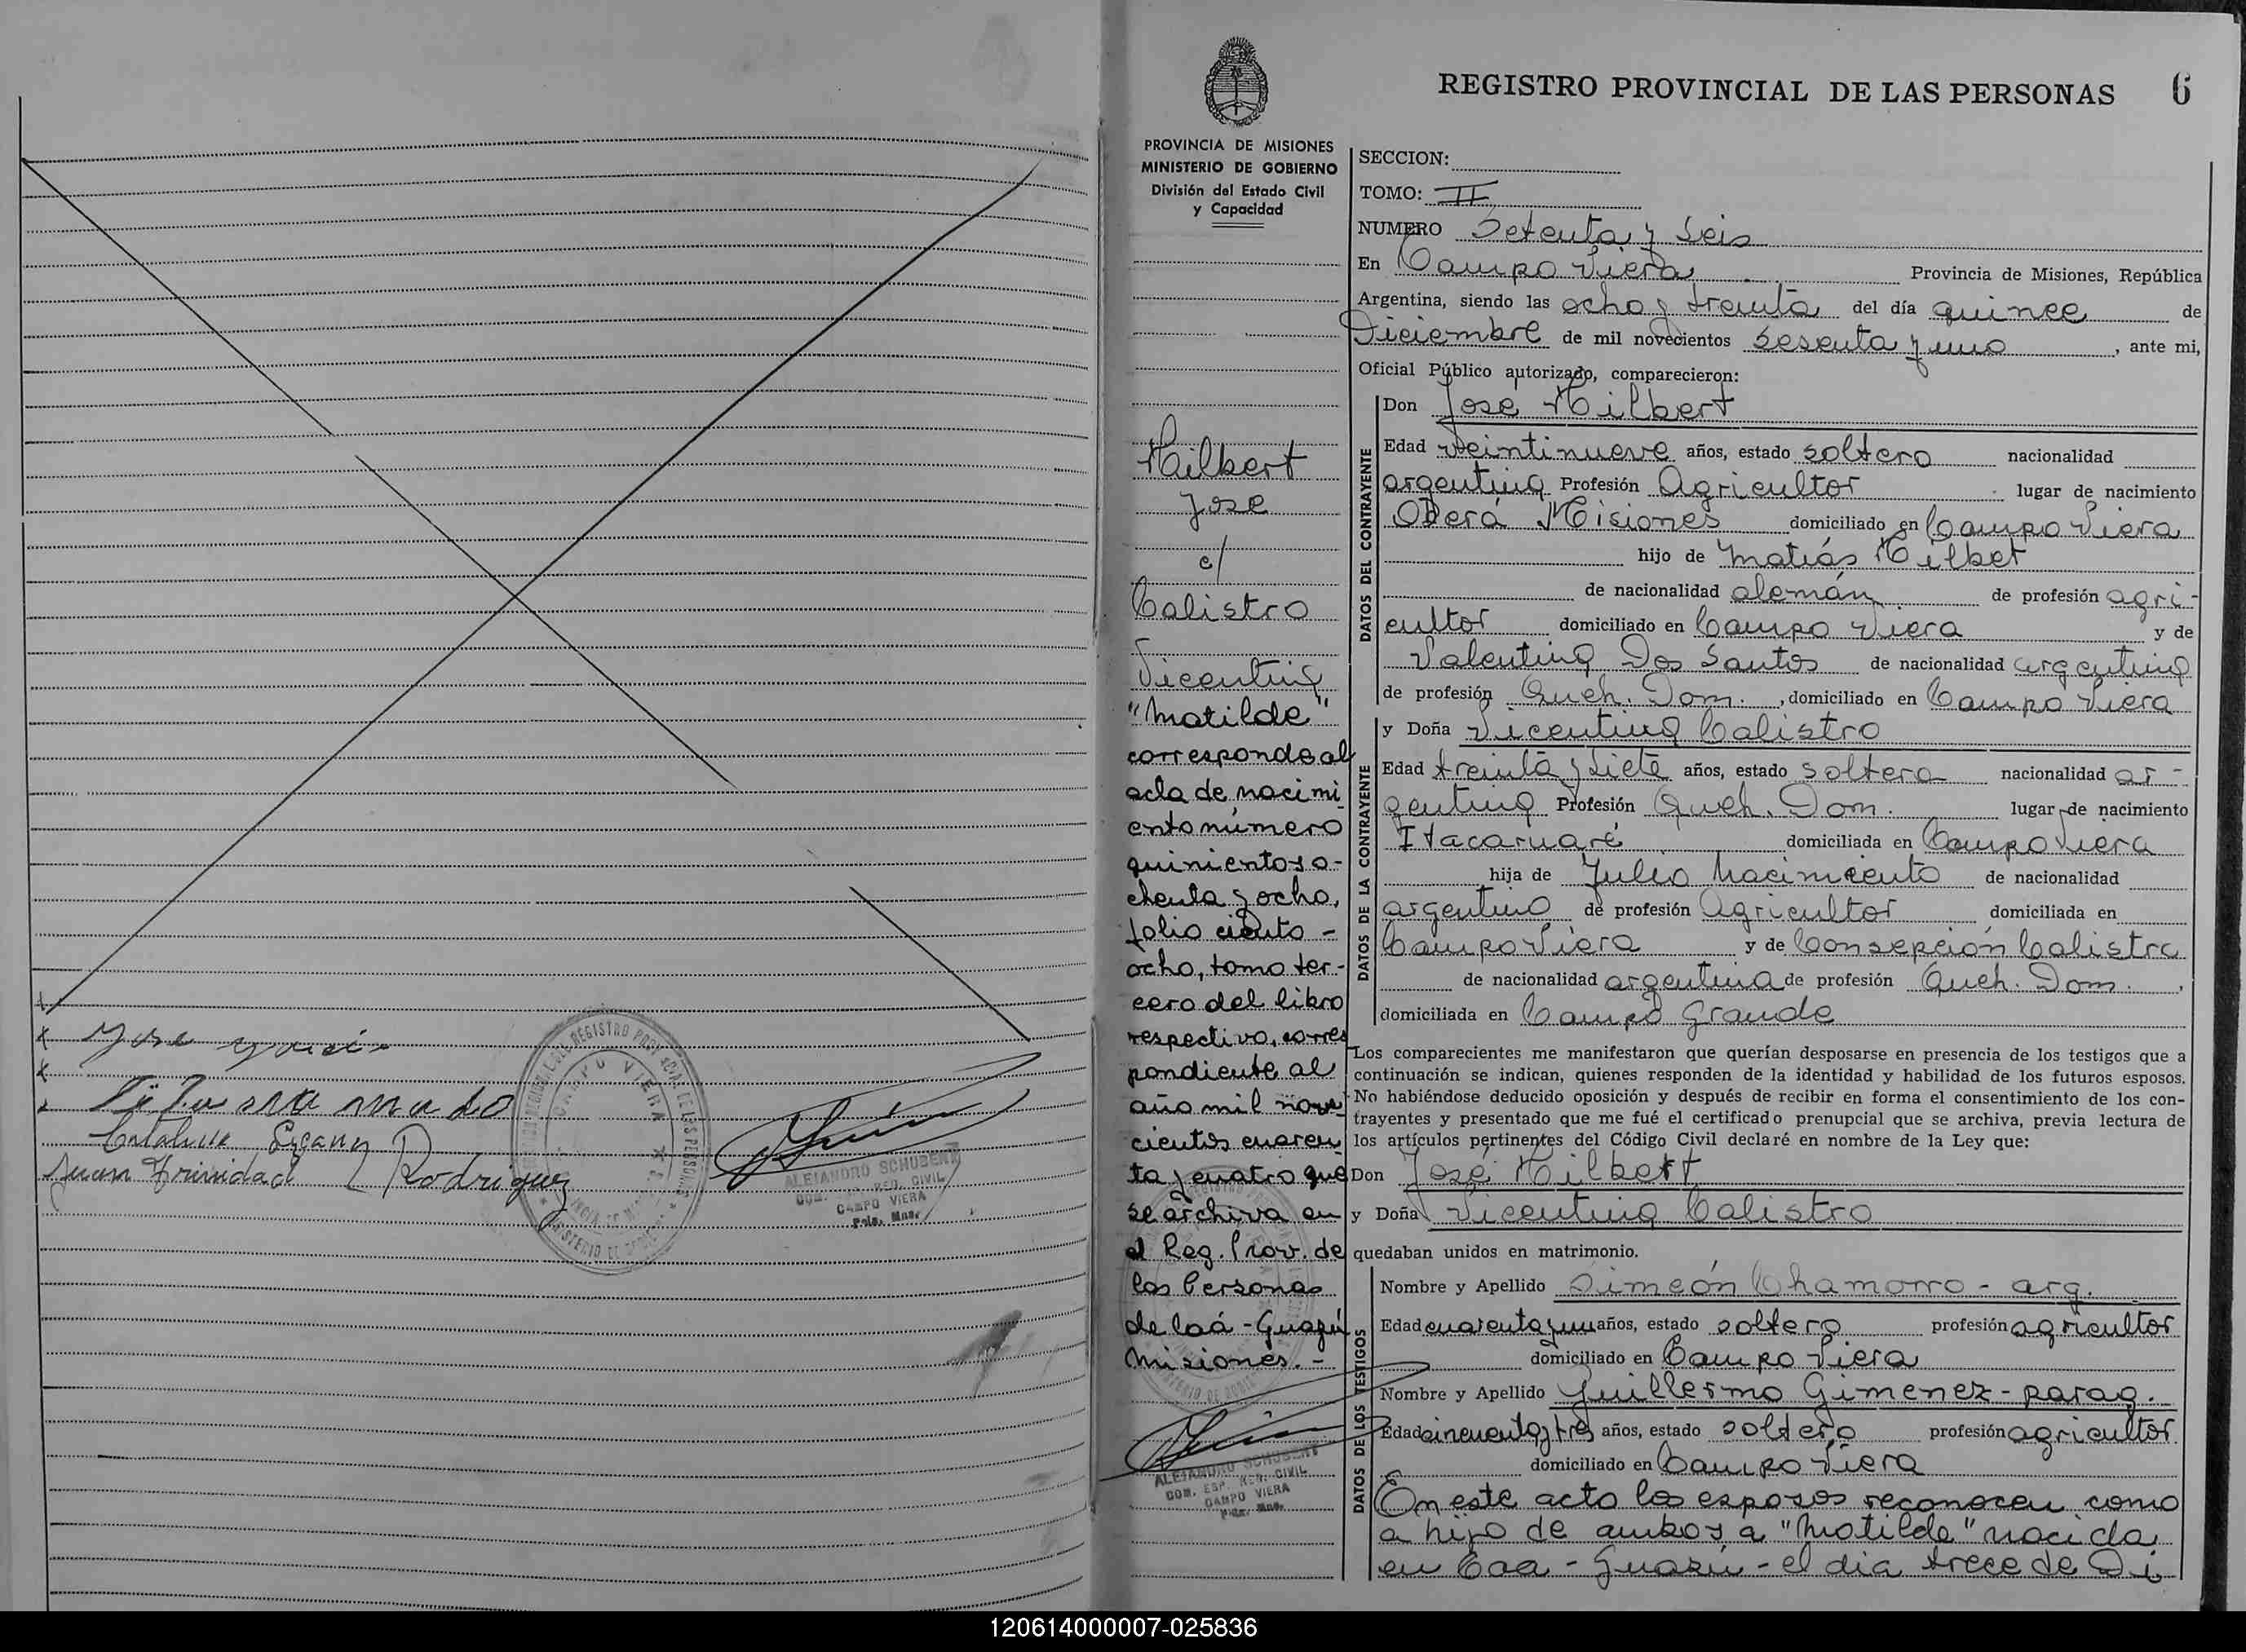 Jose
amado
Catalina
Juan Trinidad Rodriguez
REGISTRO
CAMPO VIERA
ALEJANDRO SCHUBERT
REG. CIVIL
CAMPO VIERA
Pcia. Mnes.
PROVINCIA DE MISIONES
MINISTERIO DE GOBIERNO
División del Estado Civil
y Capacidad
Hilbert
Jose
c/
Calistro
Vicentina
"Matilde"
corresponde al
acta de nacimi
ento número
quinientos o-
chenta y ocho,
folio ciento -
ocho, tomo ter-
cero del libro
respectivo, corres
pondiente al
año mil nove
cientos cuaren
ta y cuatro que
se archiva en
el Reg. Prov. de
las Personas
de Caá-Guazú
Misiones.-
ALEJANDRO SCHUBERT
COM. ESP. REG. CIVIL
CAMPO VIERA
Pcia. Mns.
REGISTRO PROVINCIAL DE LAS PERSONAS 6
SECCION:
TOMO: II
NUMERO Setenta y Seis
En Campo Viera Provincia de Misiones, República
Argentina, siendo las ocho y treinta del día quince de
Diciembre de mil novecientos Sesenta y uno, ante mi,
Oficial Público autorizado, comparecieron:
DATOS DEL CONTRAYENTE
Don Jose Hilbert
Edad veintinueve años, estado soltero nacionalidad
argentina Profesión Agricultor lugar de nacimiento
Oberá Misiones domiciliado en Campo Viera
hijo de Matiás Hilbet
de nacionalidad alemán de profesión agri-
cultor domiciliado en Campo Viera y de
Valentina Dos Santos de nacionalidad argentina
de profesión Queh. Dom. , domiciliado en Campo Viera
DATOS DE LA CONTRAYENTE
y Doña Vicentina Calistro
Edad treinta y siete años, estado soltera nacionalidad ar-
gentina Profesión Queh. Dom. lugar de nacimiento
Itacaruaré domiciliada en Campo Viera
hija de Julio Nacimiento de nacionalidad
argentino de profesión Agricultor domiciliada en
Campo Viera y de Consepción Calistro
de nacionalidad argentina de profesión Queh. Dom. ,
domiciliada en Campo Grande
Los comparecientes me manifestaron que querían desposarse en presencia de los testigos que a
continuación se indican, quienes responden de la identidad y habilidad de los futuros esposos.
No habiéndose deducido oposición y después de recibir en forma el consentimiento de los con-
trayentes y presentado que me fué el certificado prenupcial que se archiva, previa lectura de
los artículos pertinentes del Código Civil declaré en nombre de la Ley que:
Don José Hilbert
y Doña Vicentina Calistro
quedaban unidos en matrimonio.
DATOS DE LOS TESTIGOS
Nombre y Apellido Simeón Chamorro - arg.
Edad cuarenta y un años, estado soltero profesión agricultor
domiciliado en Campo Viera
Nombre y Apellido Guillermo Gimenez - parag.
Edad cincuenta y tres años, estado soltero profesión agricultor
domiciliado en Campo Viera
En este acto los esposos reconocen como
a hijo de ambos a "Matilde" nacida
en Caa-Guazú - el dia trece de Di
120614000007-025836